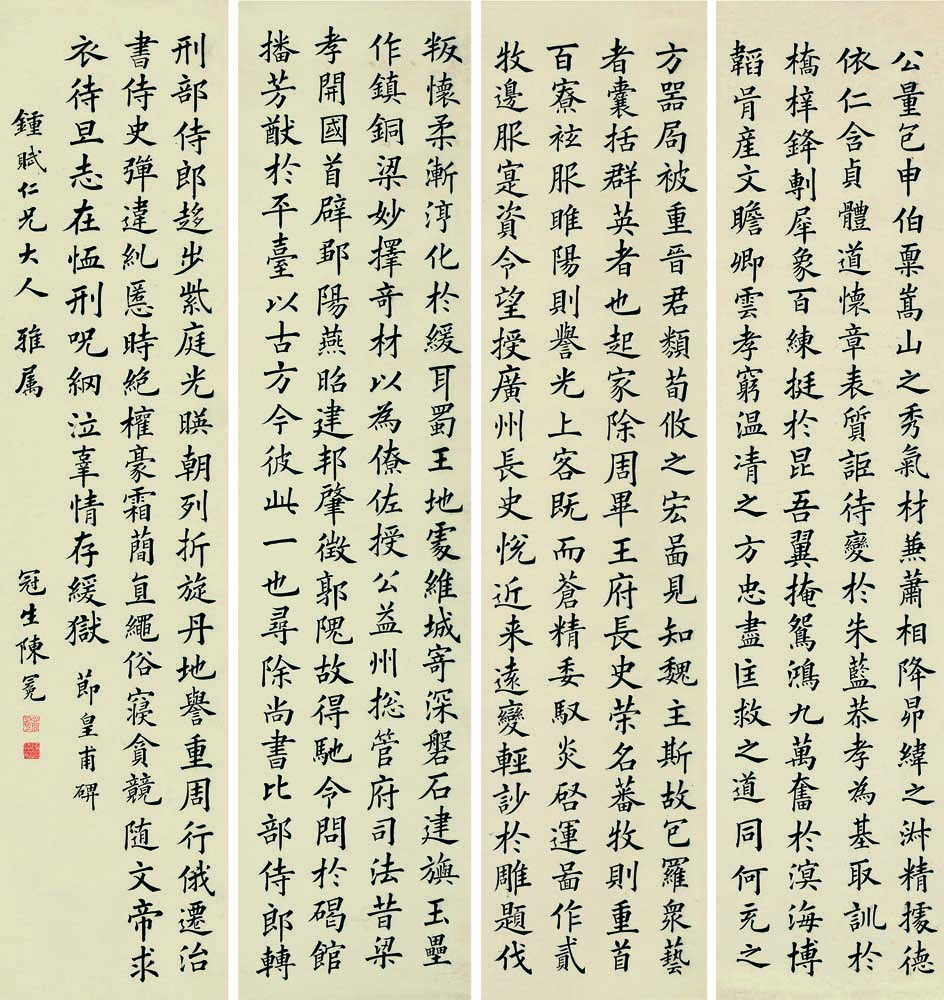 公量包申伯稟嵩山之秀氣材兼蕭相降昴緯之淋精據德
依仁含貞體道懷章表質詎待變於朱藍恭孝為基取訓於
橋梓鋒剸犀象百練挺於昆吾翼掩鴛鴻九萬奮於溟海博
韜胄産文瞻卿雲孝窮温凊之方忠盡匡救之道同何充之
方器局被重晋君纇荀攸之宏啚見知魏主斯故包羅衆藝
者囊括群英者也起家除周畢王府長史荣名蕃牧則重首
百寮袨服睢陽則譽光上客既而蒼精委馭炎啓運啚作貳
牧邊服寔資令望授廣州長史悅近来遠變輕訬於雕題伐
叛懷柔漸渟化於緩耳蜀王地處維城寄深磐石建旟玉壘
作鎮銅梁妙擇竒材以為僚佐授公益州揔管府司法昔梁
孝開國首辟鄒陽燕昭建邦肇徵郭隗故得馳令問於碣館
播芳猷於平臺以古方今彼此一也尋除尚書比部侍郎轉
刑部侍郎趍步紫庭光暎朝列折旋丹地譽重周行俄遷治
書侍史彈違糺慝時絶權豪霜蕳直繩俗寢貪競随文帝求
衣待旦志在恤刑咒綱泣辜情存緩獄 節皇甫碑
鍾賦仁兄大人 雅属
冠生陳冕